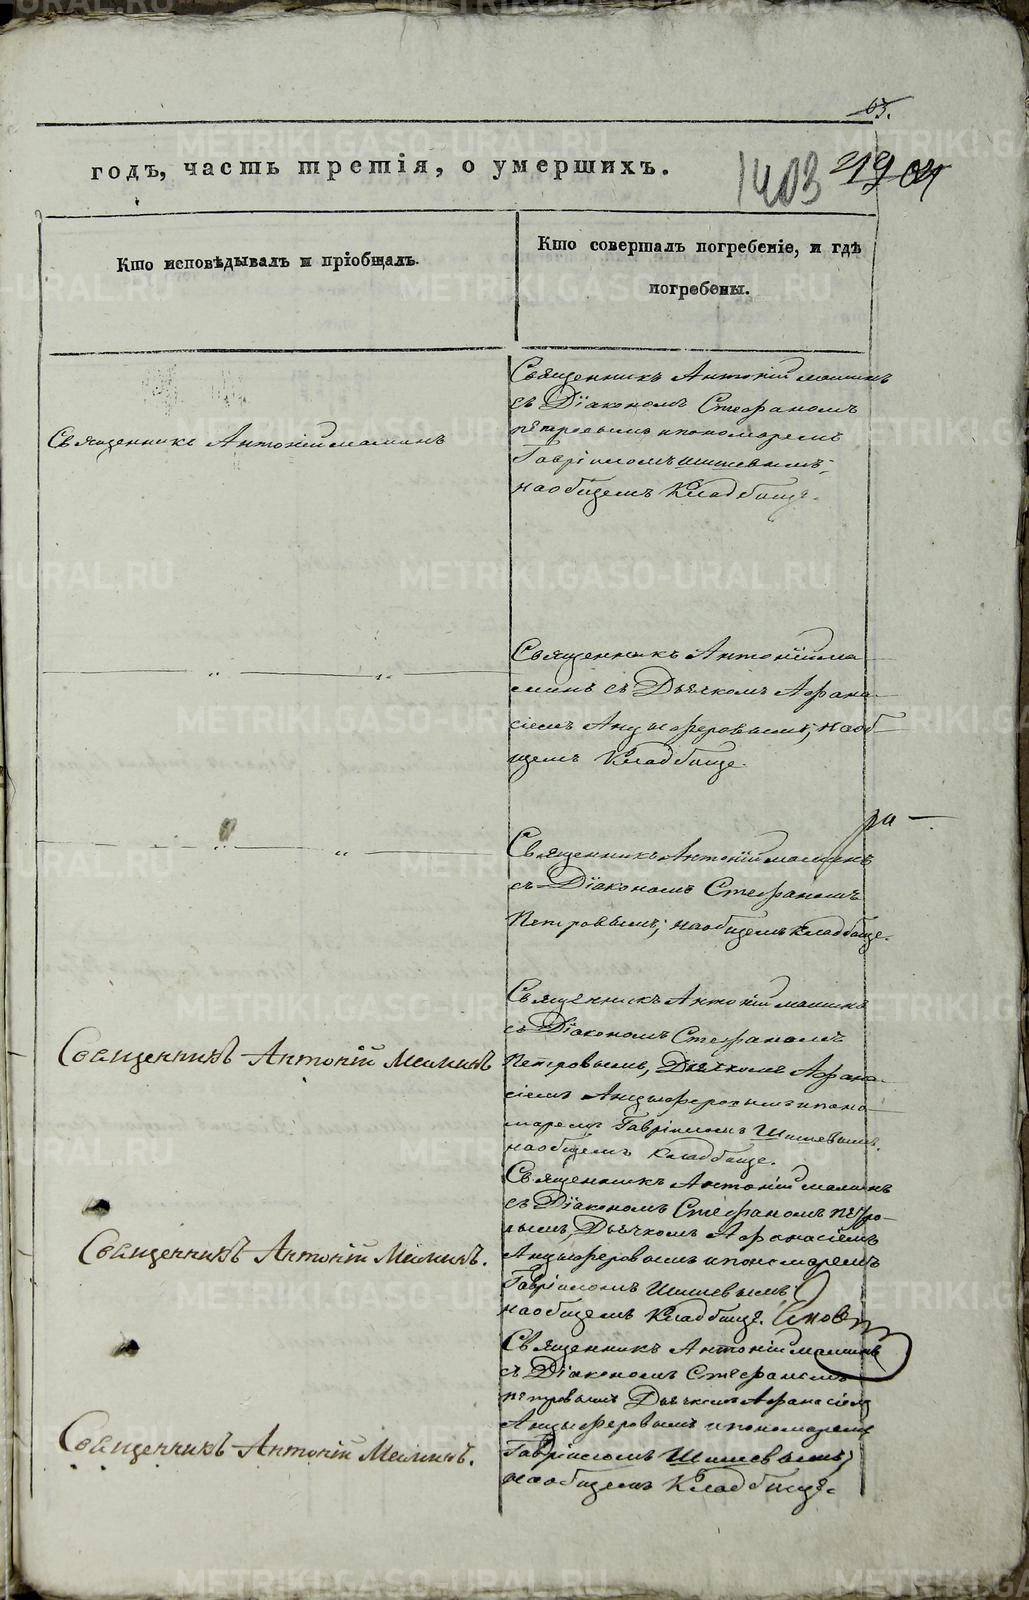 63.
годъ, часть третія, о умершихъ.
1403 1904
Кто исповѣдывалъ и пріобщалъ.
Кто совершалъ погребеніе, и гдѣ
погребены.
Священникъ Антоній Маминъ
Священникъ Антоній Маминъ
съ Діакономъ Стефаномъ
Петровымъ и пономаремъ
Гавріиломъ Шишевымъ;
на общемъ Кладбищѣ.
„ „
Священникъ Антоній Ма
минъ съ Дьячкомъ Афана
сіемъ Анцыферовымъ; на об
щемъ Кладбище.
„ „
Священникъ Антоній Маминъ
съ Діакономъ Стефаномъ
Петровымъ; на общемъ Кладбище.
Священникъ Антоній Маминъ
Священникъ Антоній Маминъ
съ Діакономъ Стефаномъ
Петровымъ, Дьячкомъ Афана
сіемъ Анцыферовымъ и поно
маремъ Гавріиломъ Шишевымъ.
на общемъ Кладбище.
Священникъ Антоній Маминъ.
Священникъ Антоній Маминъ
съ Діакономъ Стефаномъ Петро
вымъ, Дьячкомъ Афанасіемъ
Анцыферовымъ и пономаремъ
Гавріиломъ Шишевымъ;
на общемъ Кладбищѣ.
Священникъ Антоній Маминъ.
Священникъ Антоній Маминъ
съ Діакономъ Стефаномъ
Петровымъ Дьячкомъ Афанасіемъ
Анцыферовымъ и пономаремъ
Гавріиломъ Шишевымъ;
на общемъ Кладбищѣ.
METRIKI.GASO-URAL.RU